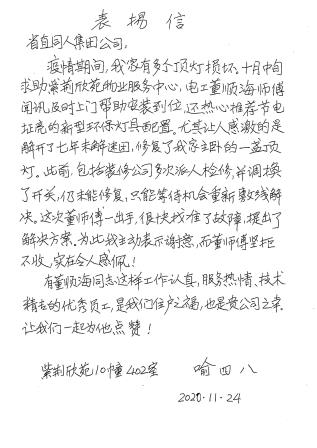 表扬信
省直同人集团公司,
疫情期间,我家有多个顶灯损坏,十月中旬
求助紫荆欣苑物业服务中心,电工董顺海师傅
闻讯及时上门帮助安装到位,还热心推荐节电
址亮的新型环保灯具配置。尤其让人感激的是
解开了七年未解迷团,修复了我家主卧的一盏顶
灯。此前,包括装修公司多次派人检修,并调换
了开关,仍未能修复,只能等待机会重新敷线解
决。这次董师傅一出手,很快找准了故障,提出了
解决方案。为此我主动表示谢意,而董师傅坚拒
不收,实在令人感佩!
有董顺海同志这样工作认真,服务热情、技术
精专的优秀员工,是我们住户之福,也是贵公司之幸。
让我们一起为他点赞!
紫荆欣苑10幢402室 喻四八
2020-11-24